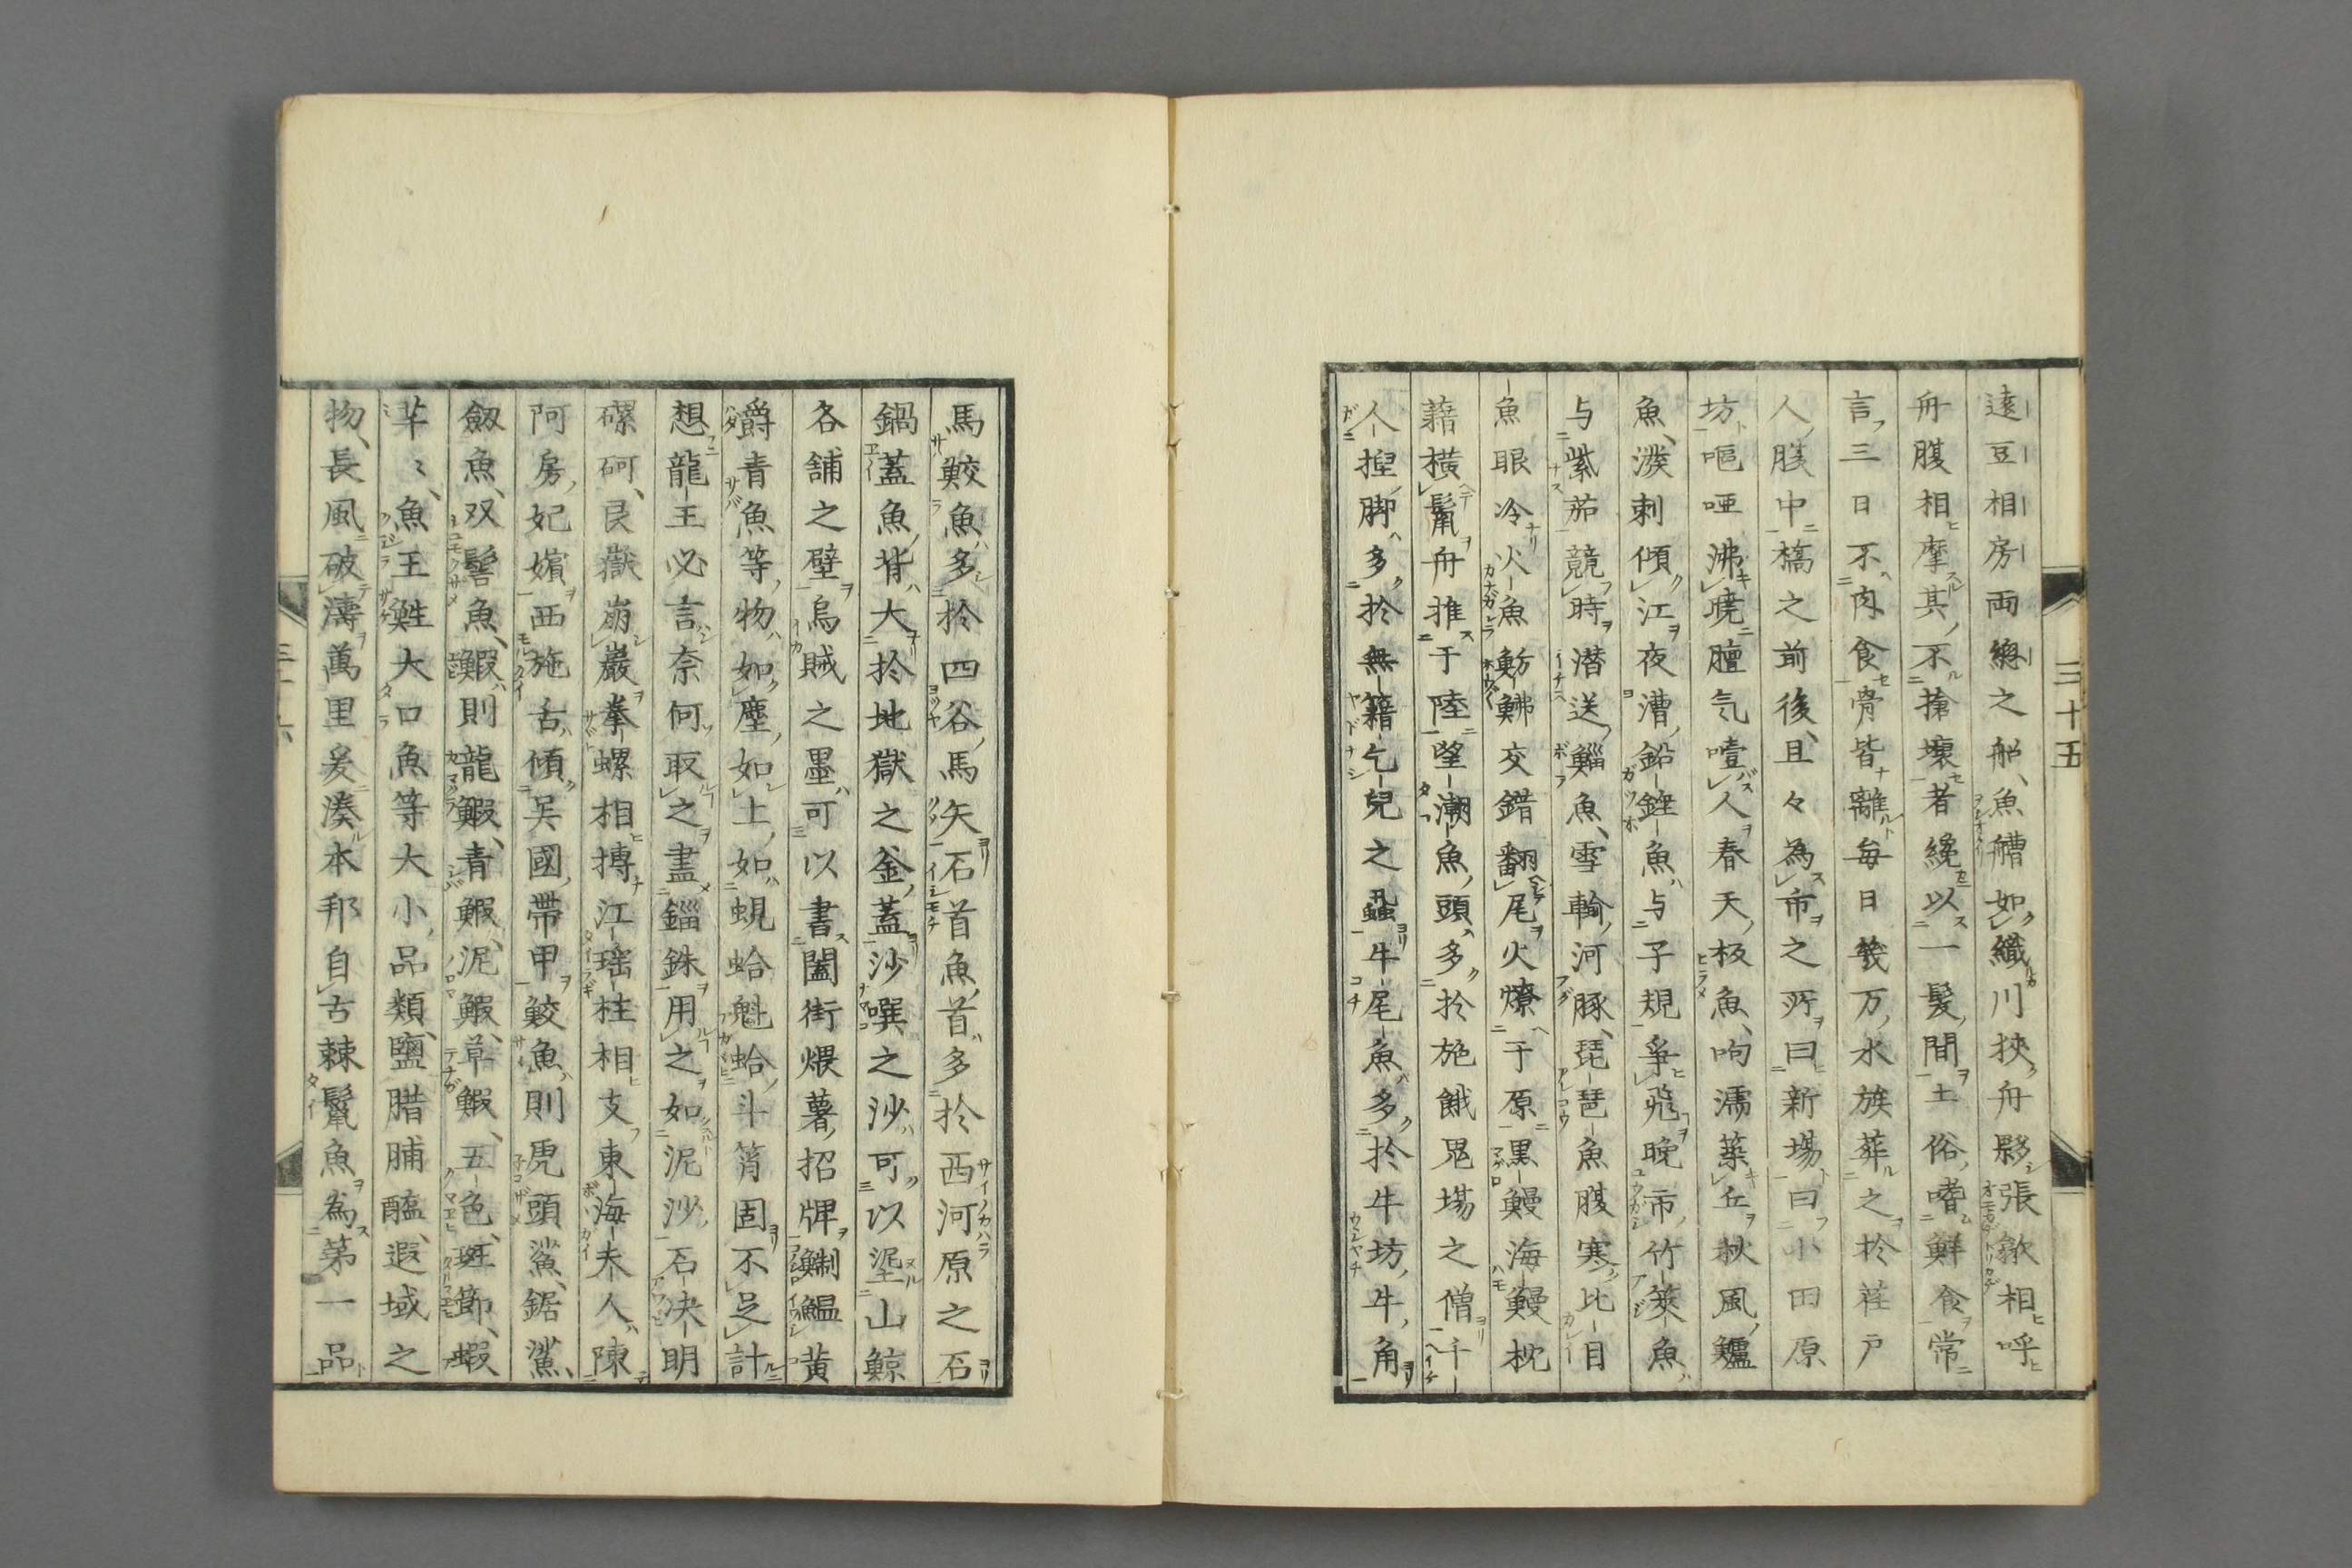 遠豆相房両總之船、魚艚如織川挾舟夥張歙相呼
舟腹相摩其不搶壞者纔以一髮間土俗嗜鮮食常
言三日不肉食骨皆離毎日幾万水族葬之於荏戸
人腹中橋之前後、且々為市之所曰新場曰小田原
坊嘔啞沸曉膻気噎人春天板魚、呴濡築丘秋風鱸
魚、潑剌傾江夜漕鉛銼魚与子規爭飛晩市竹筴魚
与紫茄競時潜送鯔魚、雪輸河豚、琵琶魚腹寒比目
魚眼冷火魚魴鮄交錯翻尾火燎于原黒鰻海鰻枕
藉橫鬣舟推于陸望潮魚頭多於施餓鬼場之僧千
人揑脚多於無籍乞兒之蝨牛尾魚多於牛坊牛角
三十五
馬鮫魚多於四谷馬矢石首魚首多於西河原之石
鍋蓋魚背大於地獄之釜蓋沙噀之沙可以埿山鯨
各舗之壁烏賊之墨可以書闔街煨薯招牌鯯鰛黄
爵青魚等物如塵如土如蜆蛤魁蛤斗筲固不足計
想龍王必言奈何取之盡錙銖用之如泥沙石決明
磥砢、艮嶽崩巖拳螺相摶江瑶柱相支東海夫人陳
阿房妃嬪西施舌傾呉國帶甲鮫魚則虎頭鯊、鋸鯊、
劔魚、双髻魚、鰕則龍鰕、青鰕、泥鰕、草鰕、五色、斑節、蝦
芉々、魚王鮏大口魚等大小品類、鹽腊脯醢、遐域之
物、長風破濤萬里爰湊本邦自古棘鬣魚為第一品